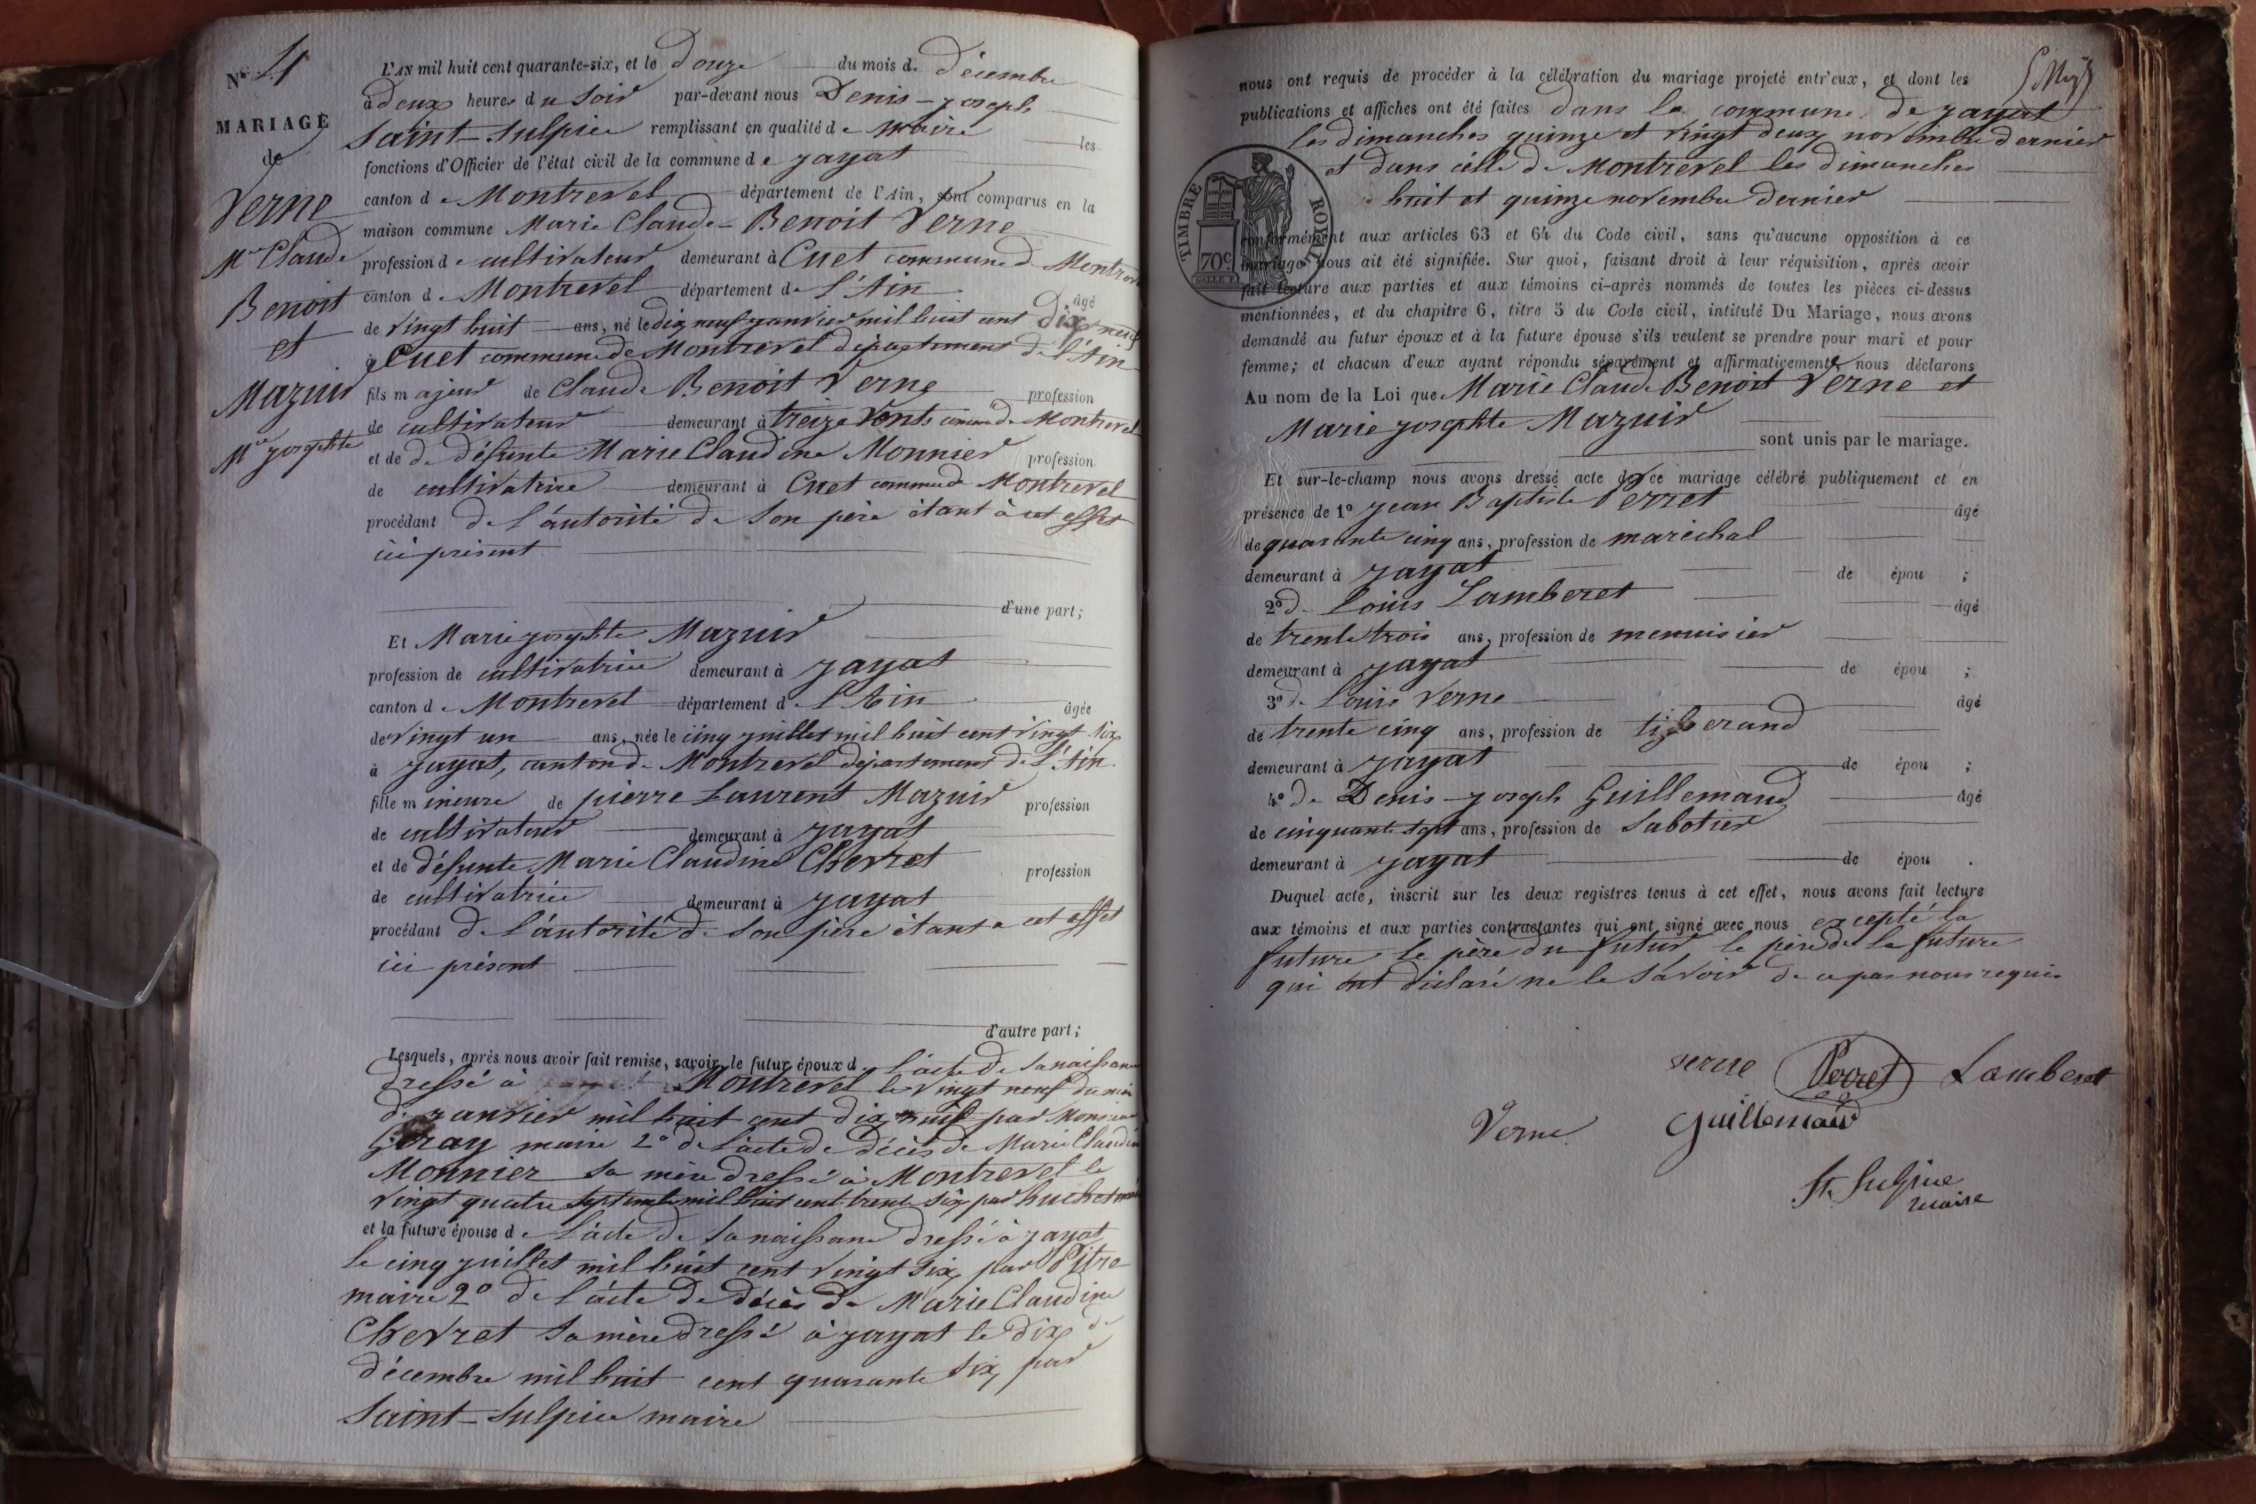 N° 4
MARIAGE
de
Verne
Mie Claude
Benoit
et
Mazuir
Mie josephte
L'AN mil huit cent quarante-six, et le Douze du mois de Décembre
à deux heures du Soir par-devant nous Denis-joseph
Saint-Sulpice remplissant en qualité de Maire les
fonctions d'Officier de l'état civil de la commune de jayat
canton de Montrevel département de l'Ain, sont comparus en la
maison commune Marie Claude Benoit Verne
profession de cultivateur demeurant à Cuet commune de Montrevel
canton de Montrevel département de L'Ain âgé
de vingt huit ans, né le dix neuf janvier mil huit cent Dix neuf
à Cuet commune de Montrevel département de l'Ain
fils majeur de Claude Benoit Verne profession
de cultivateur demeurant à treize Vents comune de Montrevel
et de de défunte Marie Claudine Monnier profession
de cultivatrice demeurant à Cuet commune de Montrevel
procédant de l'autorité de Son père étant à cet effet
ici présent
d'une part;
Et Marie josephte Mazuir
profession de cultivatrice demeurant à jayat
canton de Montrevel département de L'Ain âgée
de vingt un ans, née le cinq juillet mil huit cent vingt six
à jayat, canton de Montrevel département de L'Ain
fille mineure de pierre Laurent Mazuir profession
de cultivateur demeurant à jayat
et de défunte Marie Claudine Chevret profession
de cultivatrice demeurant à jayat
procédant de l'autorité de Son père étant a cet effet
ici présent
d'autre part;
Lesquels, après nous avoir fait remise, savoir, le futur époux de L'acte de Sa naissance
dressé à Montrevel le vingt neuf du mois
de janvier mil huit cent dix neuf par Monsieur
Geray maire 2° de l'acte de décès de Marie Claudine
Monnier Sa mère dressé à Montrevel le
vingt quatre Septembre mil huit cent trente Six par huchet maire
et la future épouse de L'acte de Sa naissance dressé à jayat
le cinq juillet mil huit cent vingt Six par Pitre
maire 2° de l'acte de décès de Marie Claudine
Chevret Sa mère dressé à jayat le dix de
décembre mil huit cent quarante Six par
Saint-Sulpice maire
nous ont requis de procéder à la célébration du mariage projeté entr'eux, et dont les
publications et affiches ont été faites dans la commune de jayat
les dimanches quinze et vingt deux novembre dernier
et dans celle de Montrevel les dimanches
huit et quinze novembre dernier
TIMBRE ROYAL
70c
conformément aux articles 63 et 64 du Code civil, sans qu'aucune opposition à ce
mariage nous ait été signifiée. Sur quoi, faisant droit à leur réquisition, après avoir
fait lecture aux parties et aux témoins ci-après nommés de toutes les pièces ci-dessus
mentionnées, et du chapitre 6, titre 5 du Code civil, intitulé Du Mariage, nous avons
demandé au futur époux et à la future épouse s'ils veulent se prendre pour mari et pour
femme; et chacun d'eux ayant répondu séparément et affirmativement, nous déclarons
Au nom de la Loi que Marie Claude Benoit Verne et
Marie josephte Mazuir
sont unis par le mariage.
Et sur-le-champ nous avons dressé acte de ce mariage célébré publiquement et en
présence de 1° jean Baptiste Perret âgé
de quarante cinq ans, profession de maréchal
demeurant à jayat de épou ;
2° de Louis Lamberet âgé
de trente trois ans, profession de menuisier
demeurant à jayat de épou ;
3° de Louis Verne âgé
de trente cinq ans, profession de tisserand
demeurant à jayat de épou ;
4° de Denis-joseph Guillemaud âgé
de cinquante sept ans, profession de Sabotier
demeurant à jayat de épou .
Duquel acte, inscrit sur les deux registres tenus à cet effet, nous avons fait lecture
aux témoins et aux parties contractantes qui ont signé avec nous excepté la
future le père du futur le père de la future
qui ont déclaré ne le Savoir de ce par nous requis
verne Perret Lamberet
Verne Guillemaud
St. Sulpice
maire